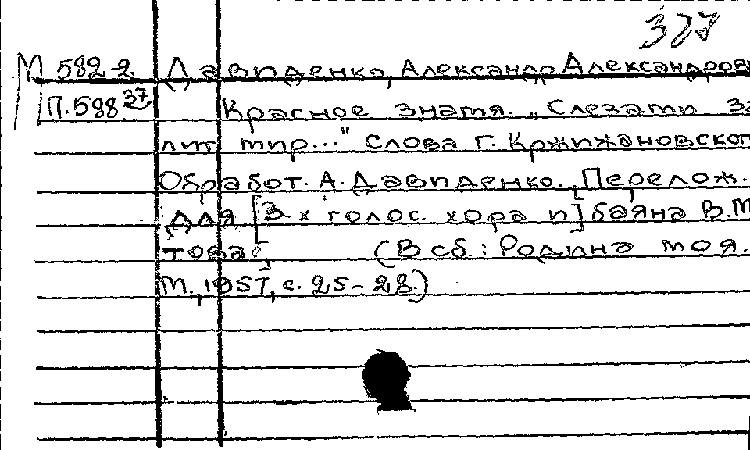 327
М 582-2 Давиденко, Александр Александров
П.598 37 Красное знамя. „Слезами за
лит мир..." Слова Г. Кржижановског
Обработ. А. Давиденко. Перелож.
для [3-х голос. хора и] баяна В.М
това. (В сб.: Родина моя.
М., 1957, с. 25-28.)